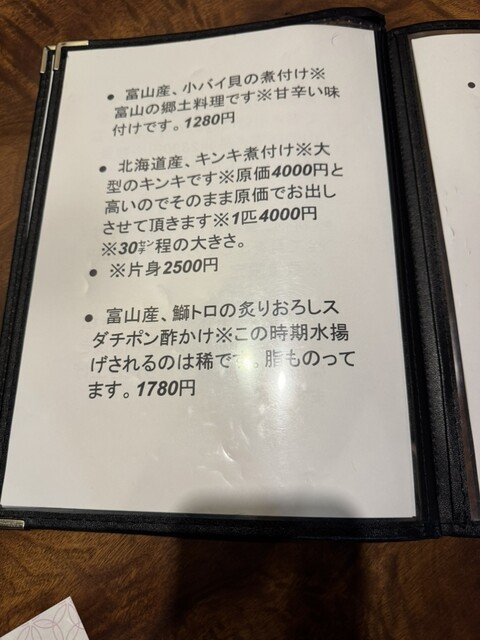 ● 富山産、小バイ貝の煮付け※
富山の郷土料理です※甘辛い味
付けです。1280円
● 北海道産、キンキ煮付け※大
型のキンキです※原価4000円と
高いのでそのまま原価でお出し
させて頂きます※1匹4000円
※30㌢程の大きさ。
● ※片身2500円
● 富山産、鰤トロの炙りおろしス
ダチポン酢かけ※この時期水揚
げされるのは稀です。脂ものって
ます。1780円